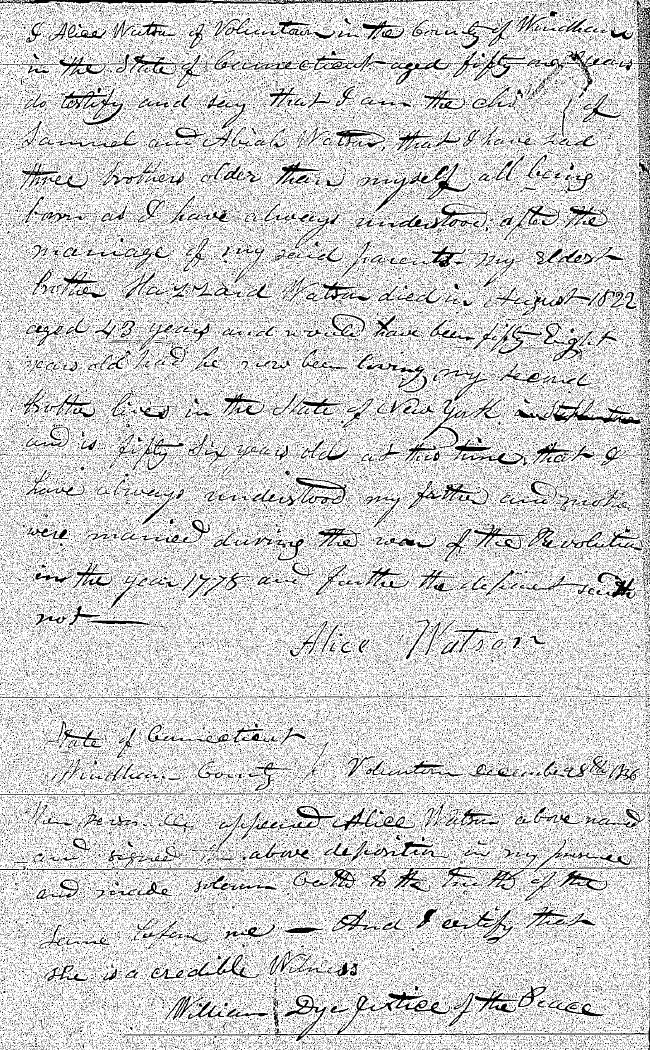 I Alice Watson of Voluntown in the County of Windham
in the State of Connecticut aged fifty one years
do testify and say that I am the chi of
Samuel and Abiah Watson, that I have had
three brothers older than myself all being
born as I have always understood, after the
marriage of my said parents my eldest
brother Hazzard Watson died in August 1822
aged 43 years and would have been fifty Eight
years old had he now been living, my second
Brother lives in the State of New York
and is fifty six years old at this time, that I
have always understood my father and mothe
were married during the war of the Revolution
in the year 1778 and further the deponent saith
not
Alice Watson
State of Connecticut
Windham County } Voluntown December 28th 1836
Then personally appeared Alice Watson above named
and signed the above deposition in my presence
and made solemn Oath to the truth of the
same before me — And I certify that
she is a credible Witness
William Dye Justice of the Peace